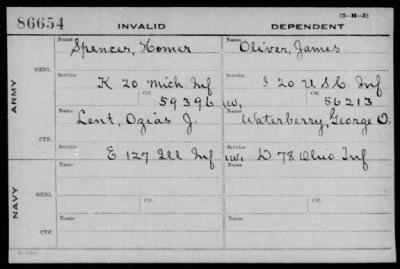 86654 INVALID DEPENDENT (3-H-2)
Name Spencer, Homer Name Oliver, James
ARMY
ORIG.
Service K 20 Mich Inf Service I 20 U S C Inf
Ctf. 59396 W, Ctf. 56213
CTF.
Name Lent, Ozias J. Name Waterberry, George O.
Service E 127 Ill Inf W, Service D 78 Ohio Inf
NAVY
ORIG.
Name Name
Service Service
Ctf. Ctf.
CTF.
Name Name